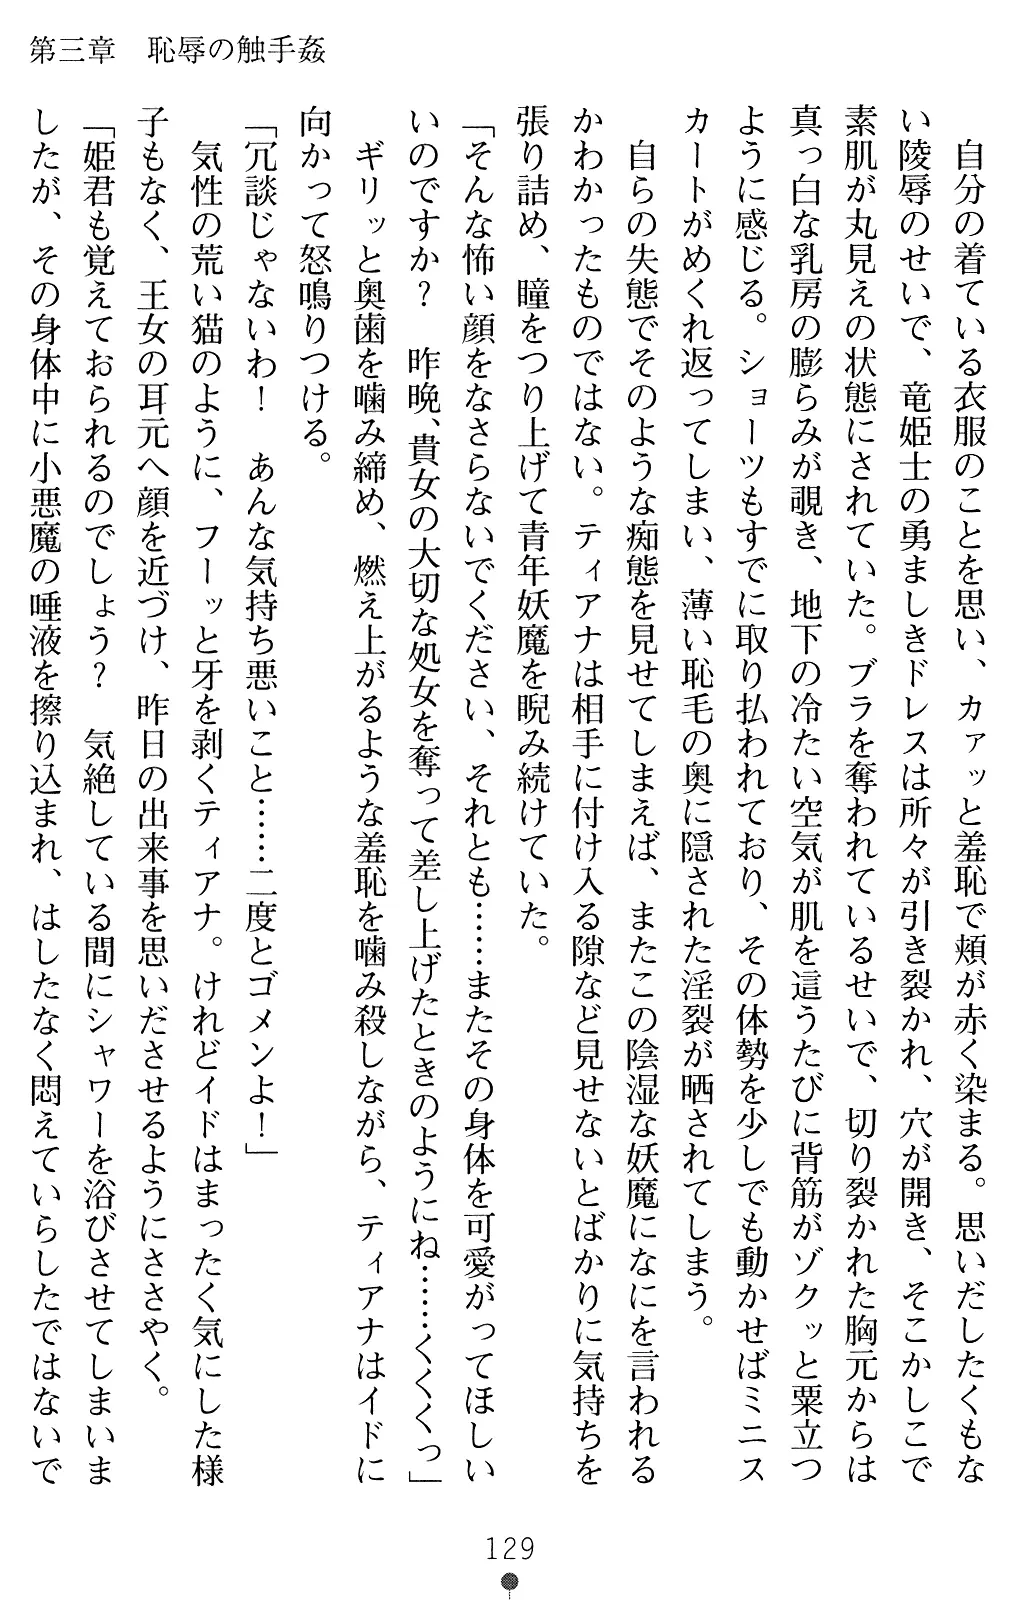 第三章　恥辱の触手姦
　自分の着ている衣服のことを思い、カァッと羞恥で頬が赤く染まる。思いだしたくもな
い陵辱のせいで、竜姫士の勇ましきドレスは所々が引き裂かれ、穴が開き、そこかしこで
素肌が丸見えの状態にされていた。ブラを奪われているせいで、切り裂かれた胸元からは
真っ白な乳房の膨らみが覗き、地下の冷たい空気が肌を這うたびに背筋がゾクッと粟立つ
ように感じる。ショーツもすでに取り払われており、その体勢を少しでも動かせばミニス
カートがめくれ返ってしまい、薄い恥毛の奥に隠された淫裂が晒されてしまう。
　自らの失態でそのような痴態を見せてしまえば、またこの陰湿な妖魔になにを言われる
かわかったものではない。ティアナは相手に付け入る隙など見せないとばかりに気持ちを
張り詰め、瞳をつり上げて青年妖魔を睨み続けていた。
「そんな怖い顔をなさらないでください、それとも……またその身体を可愛がってほしい
いのですか？　昨晩、貴女の大切な処女を奪って差し上げたときのようにね……くくくっ」
　ギリッと奥歯を噛み締め、燃え上がるような羞恥を噛み殺しながら、ティアナはイドに
向かって怒鳴りつける。
「冗談じゃないわ！　あんな気持ち悪いこと……二度とゴメンよ！」
　気性の荒い猫のように、フーッと牙を剥くティアナ。けれどイドはまったく気にした様
子もなく、王女の耳元へ顔を近づけ、昨日の出来事を思いださせるようにささやく。
「姫君も覚えておられるのでしょう？　気絶している間にシャワーを浴びさせてしまいま
したが、その身体中に小悪魔の唾液を擦り込まれ、はしたなく悶えていらしたではないで
129